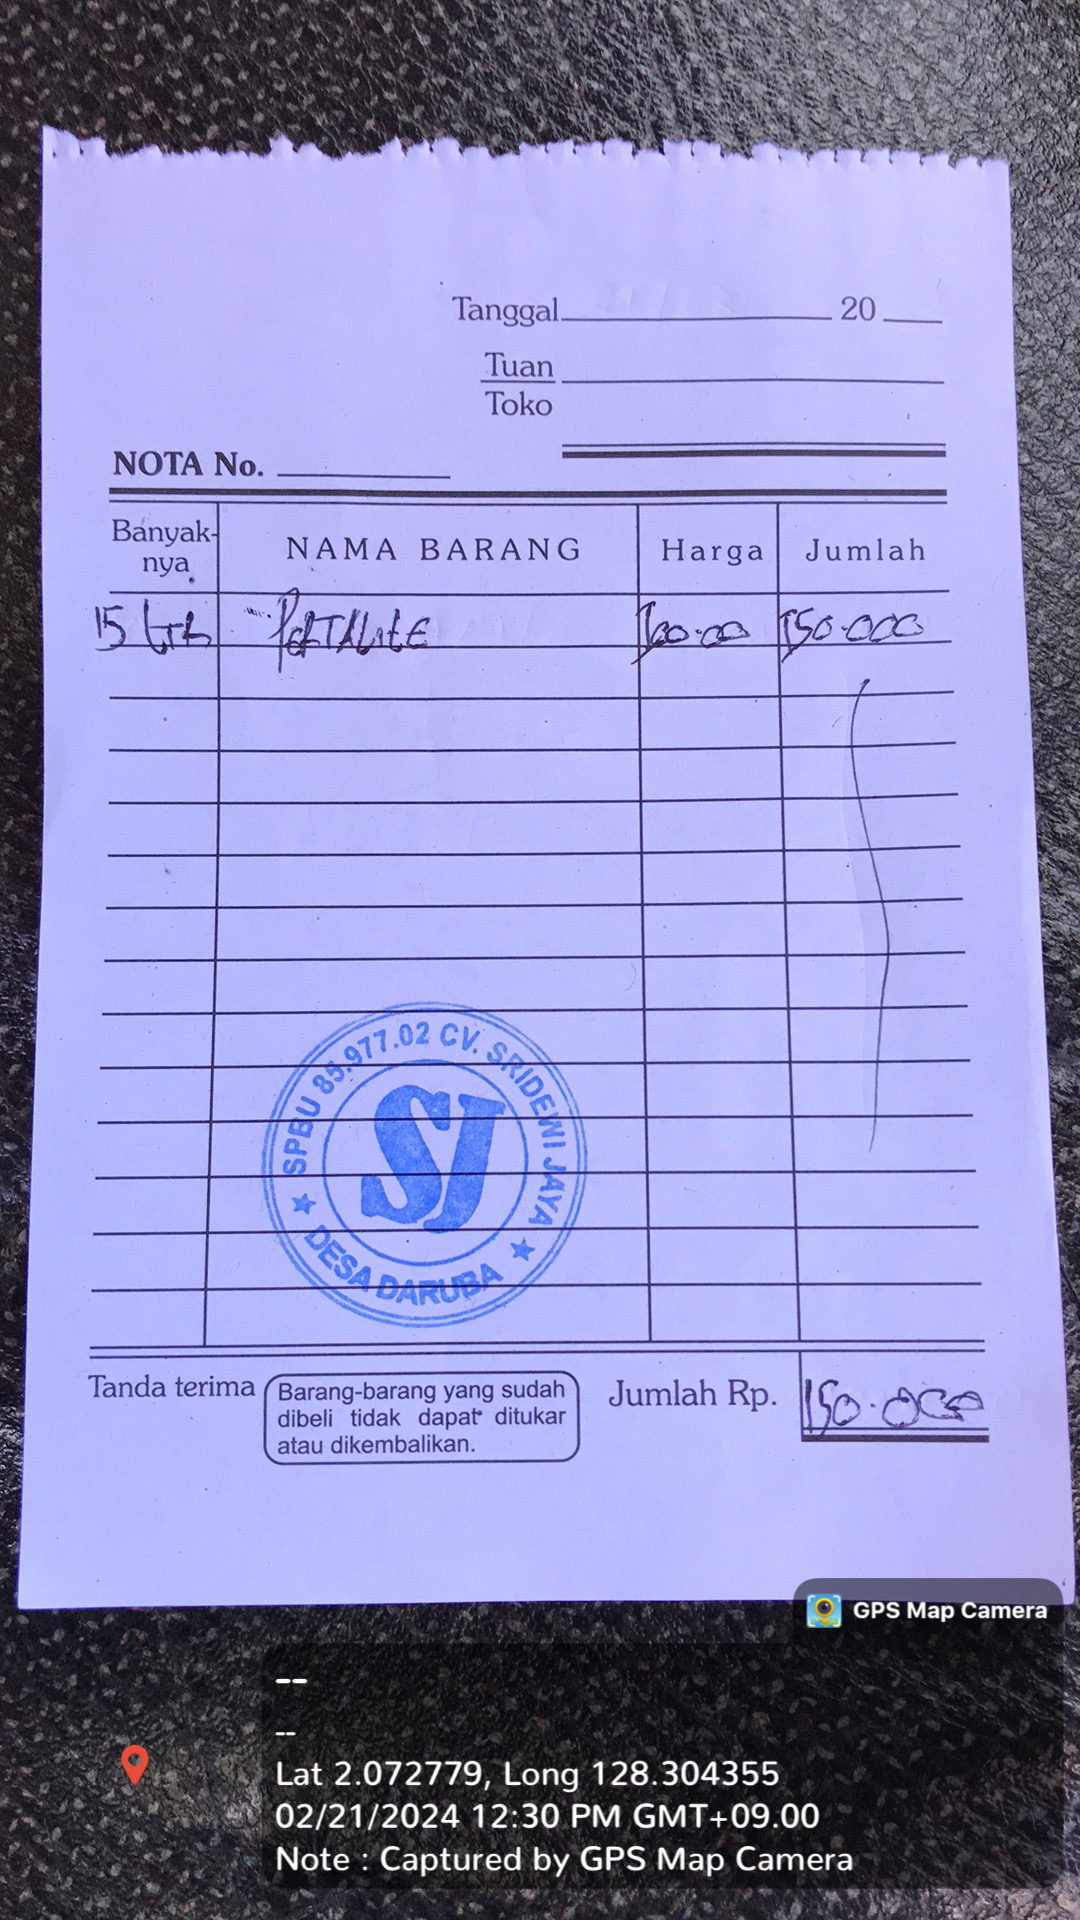 Tanggal 20
Tuan
Toko
NOTA No.
Banyak-
nya
NAMA BARANG
Harga
Jumlah
15 Ltr PERTALITE 150.000
SPBU 85.977.02 CV. SRIDEWI JAYA
SJ
DESA DARUBA
Tanda terima
Barang-barang yang sudah
dibeli tidak dapat ditukar
atau dikembalikan.
Jumlah Rp. 150.000
GPS Map Camera
--
--
Lat 2.072779, Long 128.304355
02/21/2024 12:30 PM GMT+09.00
Note : Captured by GPS Map Camera